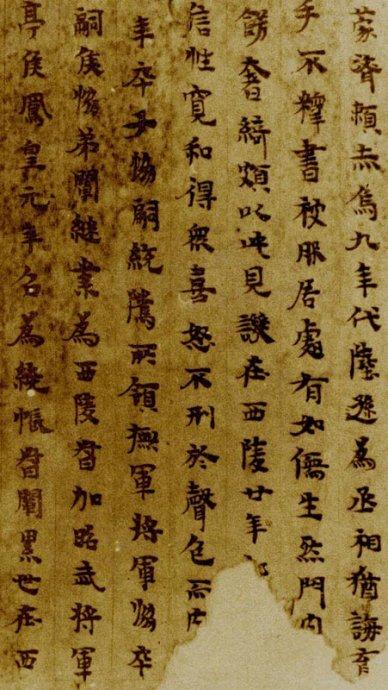 蒙濟賴赤烏九年代陸遜為丞相猶誨育
手不釋書被服居處有如儒生然門內
飾奢綺頗以此見譏在西陵廿年
信性寬和得衆喜怒不刑於聲色而內
年卒子恊嗣統騭所領撫軍將軍恊卒
嗣侯恊弟闡継業為西陵督加昭武將軍
亭侯鳳皇元年召為繞帳督闡累世在西